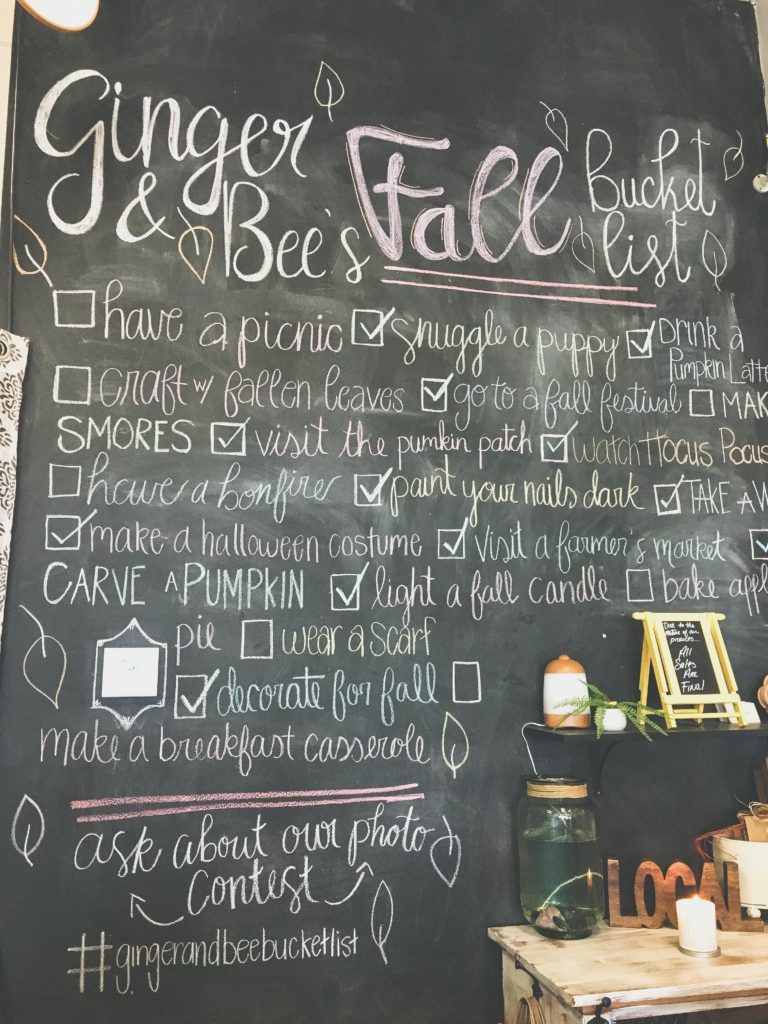 Ginger
& Bee's Fall Bucket
list
have a picnic snuggle a puppy Drink a
Pumpkin Latte
craft w/ fallen leaves go to a fall festival MAK
SMORES visit the pumkin patch watch Hocus Pocus
have a bonfire paint your nails dark TAKE A W
make a halloween costume visit a farmer's market
CARVE A PUMPKIN light a fall candle bake appl
pie wear a scarf
decorate for fall
make a breakfast casserole
ask about our photo
contest
#gingerandbeebucketlist
Due to the
nature of our
products...
All
Sales
Are
Final
LOCAL